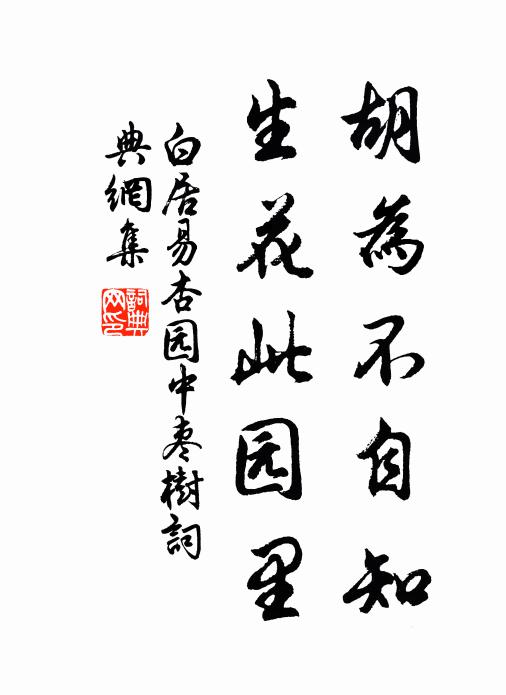 胡為不自知
生花此园里
白居易杏园中枣樹詞
典網集
詞典
网印